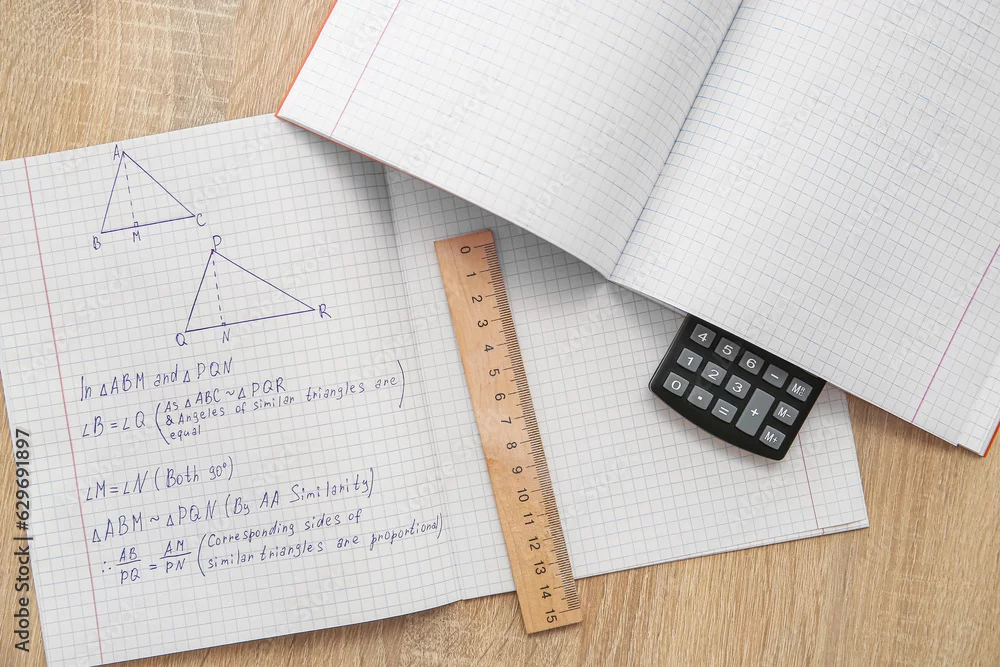 A
B M C
P
Q N R
In △ABM and △PQN
∠B = ∠Q (As △ABC ~ △PQR
& Angeles of similar triangles are
equal)
∠M = ∠N (Both 90°)
△ABM ~ △PQN (By AA Similarity)
∴ AB/PQ = AM/PN (Corresponding sides of
similar triangles are proportional)
0 1 2 3 4 5 6 7 8 9 10 11 12 13 14 15
4 5 6 −
1 2 3 M−
0 · = + M+
Adobe Stock | #629691897